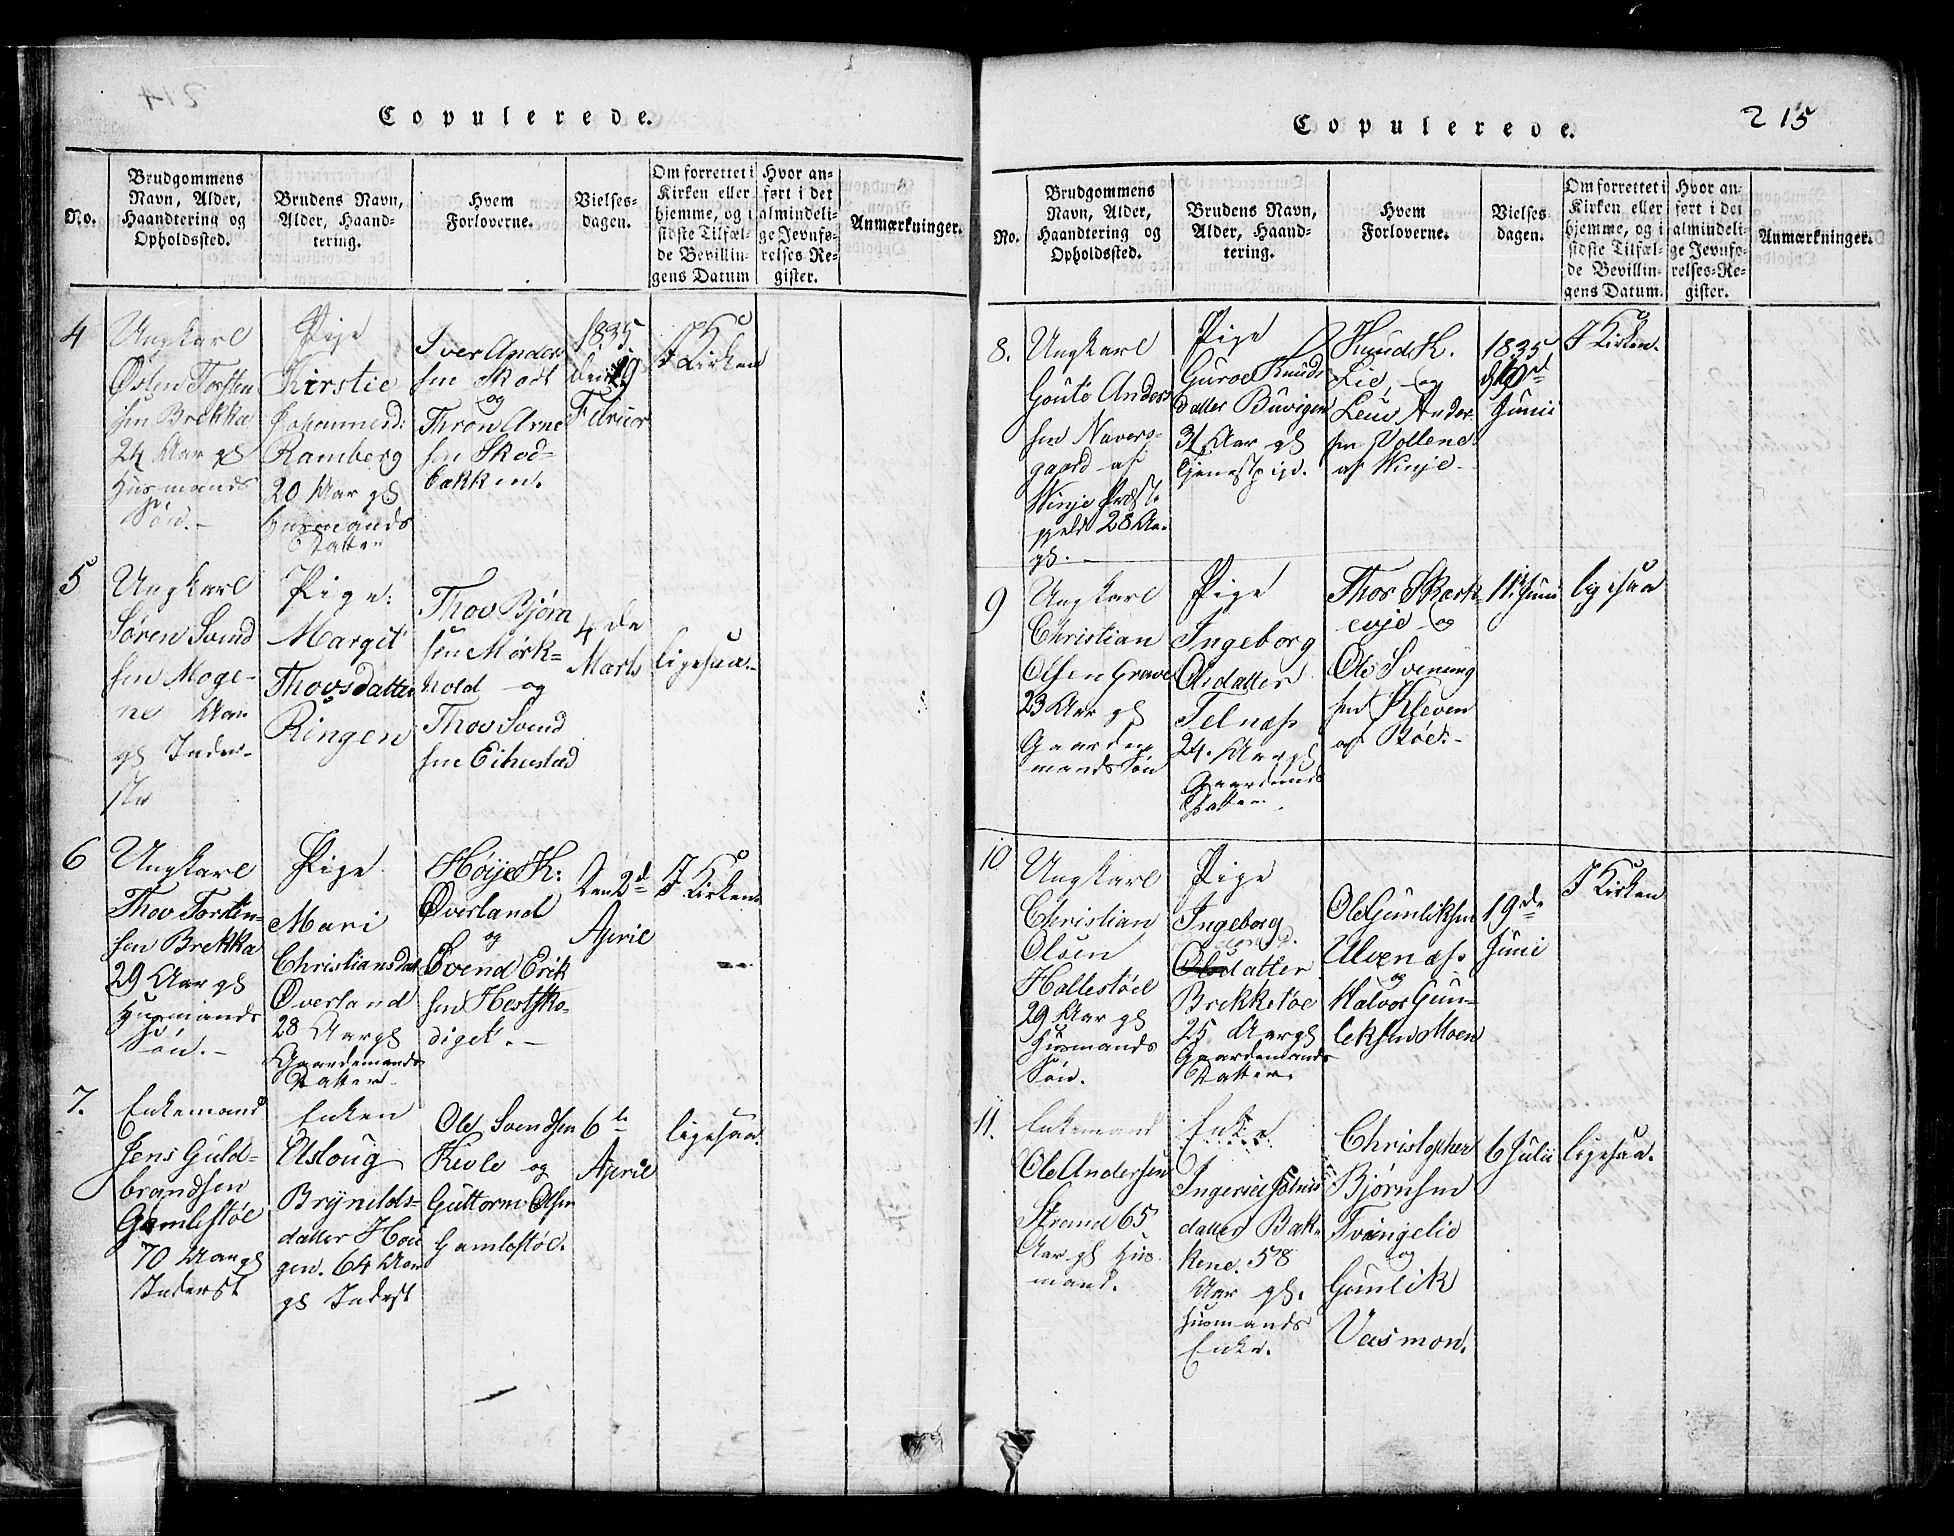 Copulerede.
No.
Brudgommens
Navn, Alder,
Haandtering og
Opholdssted.
Brudens Navn,
Alder, Haand-
tering.
Hvem
Forloverne.
Vielses-
dagen.
Om forrettet i
Kirken eller
hjemme, og i
sidste Tilfæl-
de Bevillin-
gens Datum
Hvor an-
ført i det
almindeli-
ge Jevnfø-
relses-Re-
gister.
Anmærkninger.
4
Ungkarl
Østen Torsten
sen Brekka
24 Aar gl
Husmands
Søn.-
Pige
Kirstie
Johannesd:
Ramberg
20 Aar gl
husmands
Datter
Iver Ander
sen Skodt
og
Thron Arne
sen Skod-
bakken.
1835.
den 19
Februar
I Kirken
5
Ungkarl
Søren Svend
sen Moge-
ne Aar
gl Inder-
ste
Pige:
Margit
Thovsdatter
Ringen
Thov Bjørn
sen Mørk-
hold og
Thov Svend
sen Eikestad
4 de
Marts
ligesaa.-
6
Ungkarl
Thov Torsten-
sen Brekka
29 Aar gl
Husmands
Søn.-
Pige
Mari
Christiansdat
Øverland
28 Aar gl
Gaardemands
Datter
Høije K:
Øverland
og
Svend Erik
sen Hestsko-
diget.-
Den 2d
April
I Kirken
7.
Enkemand
Jens Guld-
brandsen
Gamlestøl
70 Aar gl
Inderst
Enken
Asloug
Brynilds-
datter Hou
gen. 64 Aar
gl Inderst
Ole Svendsen
Kivle og
Guttorm Olsen
Gamlestøl.
6te
April
ligesaa.
215
Copulerede.
No.
Brudgommens
Navn, Alder,
Haandtering og
Opholdssted.
Brudens Navn,
Alder, Haand-
tering.
Hvem
Forloverne.
Vielses
dagen.
Om forrettet i
Kirken eller
hjemme, og i
sidste Tilfæl-
de Bevillin-
gens Datum.
Hvor an-
ført i det
almindeli-
ge Jevnfø-
relses-Re-
gister.
Anmærkninger.
8.
Ungkarl
Goute Anders
sen Navers-
gaard af
Winje Præste
gjeld 28 Aar
gl.
Pige
Guroe Knuds
datter Buvigen
31 Aar gl
tjenestpige.
Knud K.
Lie, og
Leur Ander
sen Vollene
af Winje-
1835
d 10d
Junii
I Kirken.
9
Ungkarl
Christian
Olsen Grave
23 Aar gl
Gaarde
mands Søn
Pige
Ingeborg
Olsdatter
Telnæs
24. Aar gl
Gaardmands
Datter.
Thor Skark-
evje og
Ole Svenung
sen Kleven
af Bøe.-
11 Junii
ligesaa
10
Ungkarl
Christian
Olsen
Hollestøel
29 Aar gl
Husmands
Søn.
Pige
Ingeborg
datter
Brekkstøe
25 Aar gl
Gaardemands
Datter.
Ole Gunliksen
Ulvenæs.
og
Halvor Gun-
leksen Moen
19de
Juni
I Kirken
11.
Enkemand
Ole Andersen
Strand 65
Aar gl Hus
mand.
Enke
datter Bak-
kene. 58
Aar gl.
husmands
Enke.
Christopher
Bjørnsen
Tvingelie
og
Gunlik
Vasmon.
6 Julii
ligesaa.